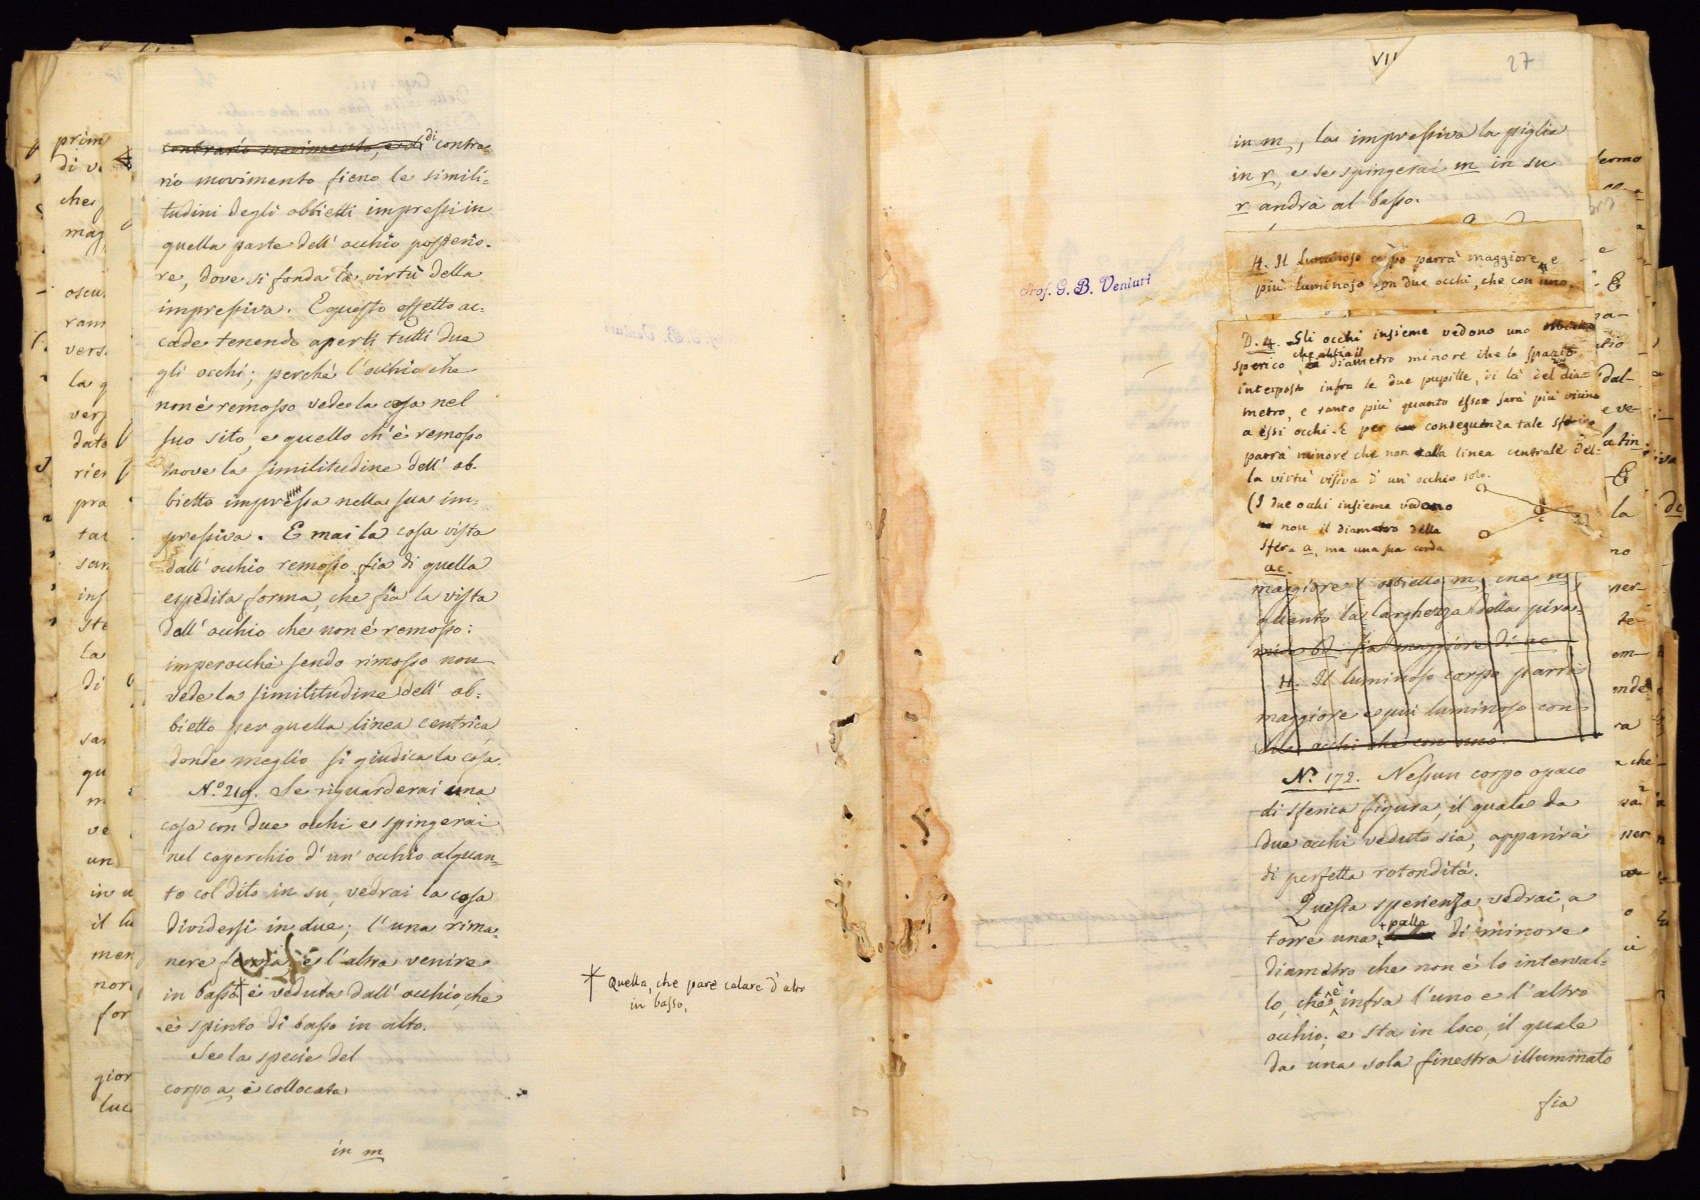 contrario movimento, e di di contra
rio movimento fieno le simili=
tudini degli obbietti impressi in
quella parte dell' occhio posterio-
re, dove si fonda la virtù della
impressiva. E questo effetto ac-
cade tenendo aperti tutti due
gli occhi; perchè l'occhio che
non è remosso vede la cosa nel
suo sito, e quello ch'è remosso
move la similitudine dell' ob-
bietto impressa nella sua im-
pressiva. E mai la cosa vista
dall' occhio remosso fia di quella
espedita forma, che fia la vista
dell' occhio che non è remosso:
imperocchè sendo rimosso non
vede la similitudine dell' ob-
bietto per quella linea centrica,
donde meglio si giudica la cosa.
N.º 219. Se riguarderai una
cosa con due occhi e spingerai
nel coperchio d'un' occhio alquan=
to col dito in su, vedrai la cosa
dividersi in due; l'una rima-
nere ferma, e l'altra venire
in basso è veduta dall' occhio, che
è spinto di basso in alto.
Se la specie del
corpo a è collocata
in m
Quella, che pare calare d'alto
in basso,
Prof. G. B. Venturi
VII
27
in m, la impressiva la piglia
in r, e se spingerai m in su
r andrà al basso.
H. Il luminoso corpo parrà maggiore, e
più luminoso con due occhi, che con uno.
D. 4. Gli occhi insieme vedono uno obbietto
sperico che abbia il diametro minore che lo spazio
interposto infra le due pupille, di là del dia=
metro, e tanto più quanto esso sarà più vicino
a essi occhi. E per conseguenza tale
parrà minore che non dalla linea centrale del-
la virtù visiva d'un' occhio solo.
(I due occhi insieme vedono
non il diametro della
sfera a, ma una sua corda
ac.
maggiore l'obbietto m, che n,
quanto la larghezza della pira-
mide bd fia maggiore di ac
H. Il luminoso corpo parrà
maggiore e più luminoso con
due occhi che con uno.
N.º 172. Nessun corpo opaco
di sferica figura, il quale da
due occhi veduto sia, apparirà
di perfetta rotondità.
Questa sperienza vedrai, a
torre una palla di minore
diametro che non è lo interval-
lo, che è infra l'uno e l'altro
occhio; e sta in loco, il quale
da una sola finestra illuminato
fia